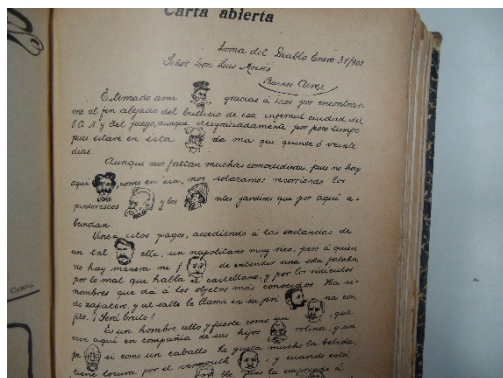 Carta abierta
Loma del Diablo Enero 31/903
Señor Don Luis Moisés
Buenos Aires
Estimado ami gracias á Dios por encontrar-
me al fin alejado del bullicio de esa infernal ciudad del
y del juego, aunque desgraciadamente, por poco tiempo
pues estaré en esta de ma que quince ó veinte
dias.
Aunque nos faltan muchas comodidades, pues no hay
aquí como en esa, nos solazamos recorriendo los
pintorescos y los tes jardines que por aquí a-
bundan.
Vine á estos pagos, accediendo á las instancias de
un tal elli, un napolitano muy rico, pero á quien
no hay manera de entender una sola palabra
por lo mal que habla el castellano, y por los ridículos
nombres que da á los objetos más conocidos Ha si-
do zapatero, y al salto le llama en su jeri na con
fro. ¡Será bruto!
Es un hombre alto y fuerte como un que
vive aquí en compañía de sus hijos rolina, y un
si come un caballo le gusta mucho la bebida,
tiene locura por el vermouth y cuando está
lle pues la emprende á
CARPA